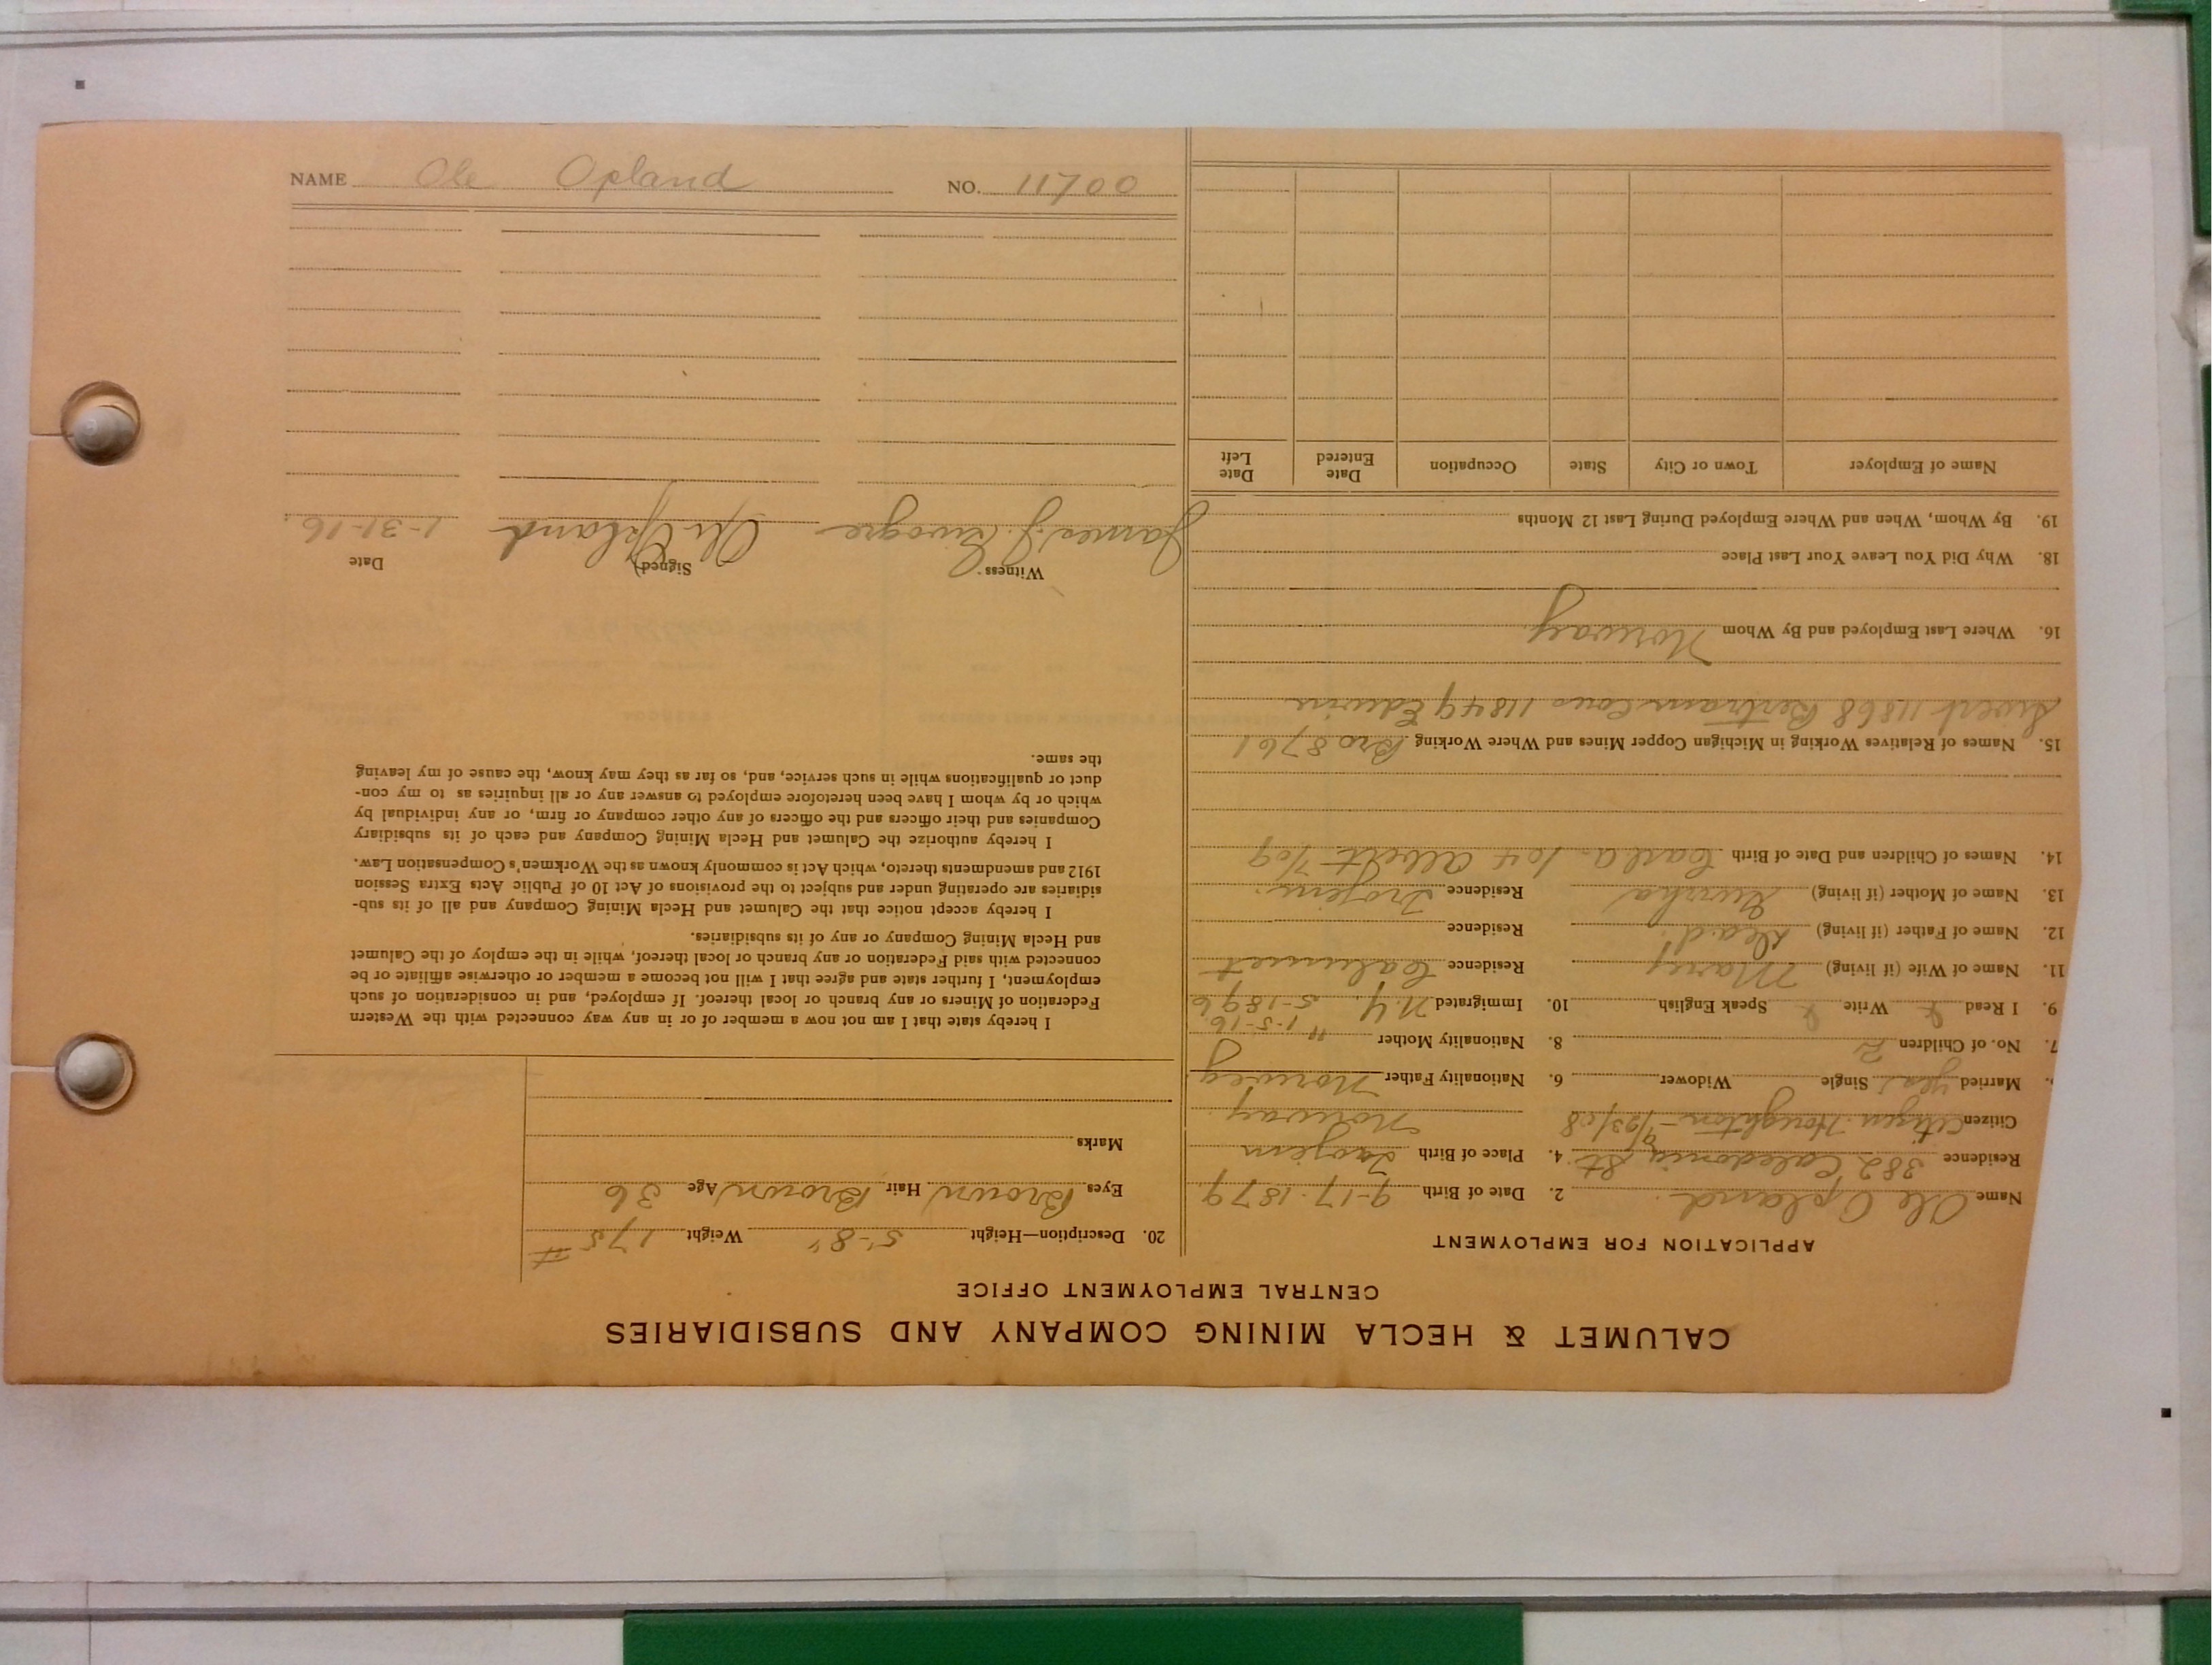 NAME Ole Opland NO. 11700
CALUMET & HECLA MINING COMPANY AND SUBSIDIARIES
CENTRAL EMPLOYMENT OFFICE
APPLICATION FOR EMPLOYMENT
Name Ole Opland 2. Date of Birth 9-17-1879
Residence 382 Caledonia St. 4. Place of Birth
Citizen Citizen Houghton - 9/23/08 Norway
Married yes Single Widower 6. Nationality Father Norweg
7. No. of Children 2 8. Nationality Mother "
1-5-16
9. I Read Write Speak English 10. Immigrated N.Y. 5-1896
11. Name of Wife (if living) Mary Residence Calumet
12. Name of Father (if living) Dead Residence
13. Name of Mother (if living) Residence
14. Names of Children and Date of Birth Carl a. Albert 7/09
15. Names of Relatives Working in Michigan Copper Mines and Where Working Bro 8761
Sivert 11868 Bertram Cous 11849 Edwin
16. Where Last Employed and By Whom Norway
18. Why Did You Leave Your Last Place
19. By Whom, When and Where Employed During Last 12 Months
Name of Employer Town or City State Occupation Date Entered Date Left
20. Description—Height 5'-8" Weight 175 #
Eyes Brown Hair Brown Age 36
Marks
I hereby state that I am not now a member of or in any way connected with the Western
Federation of Miners or any branch or local thereof. If employed, and in consideration of such
employment, I further state and agree that I will not become a member or otherwise affiliate or be
connected with said Federation or any branch or local thereof, while in the employ of the Calumet
and Hecla Mining Company or any of its subsidiaries.
I hereby accept notice that the Calumet and Hecla Mining Company and all of its sub-
sidiaries are operating under and subject to the provisions of Act 10 of Public Acts Extra Session
1912 and amendments thereto, which Act is commonly known as the Workmen's Compensation Law.
I hereby authorize the Calumet and Hecla Mining Company and each of its subsidiary
Companies and their officers and the officers of any other company or firm, or any individual by
which or by whom I have been heretofore employed to answer any or all inquiries as to my con-
duct or qualifications while in such service, and, so far as they may know, the cause of my leaving
the same.
Witness (Signed) Date
James J. Ole Opland 1-31-16